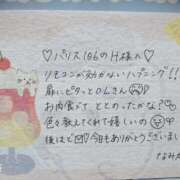 ♡バリス106のH様へ♡
リモコンが効かないハプニング!!
扉にピタッとDLさん
お肉食べて ととのったかな？
色々教えてくれて嬉しいの
後ほど 今もありがとうございま
なみカ